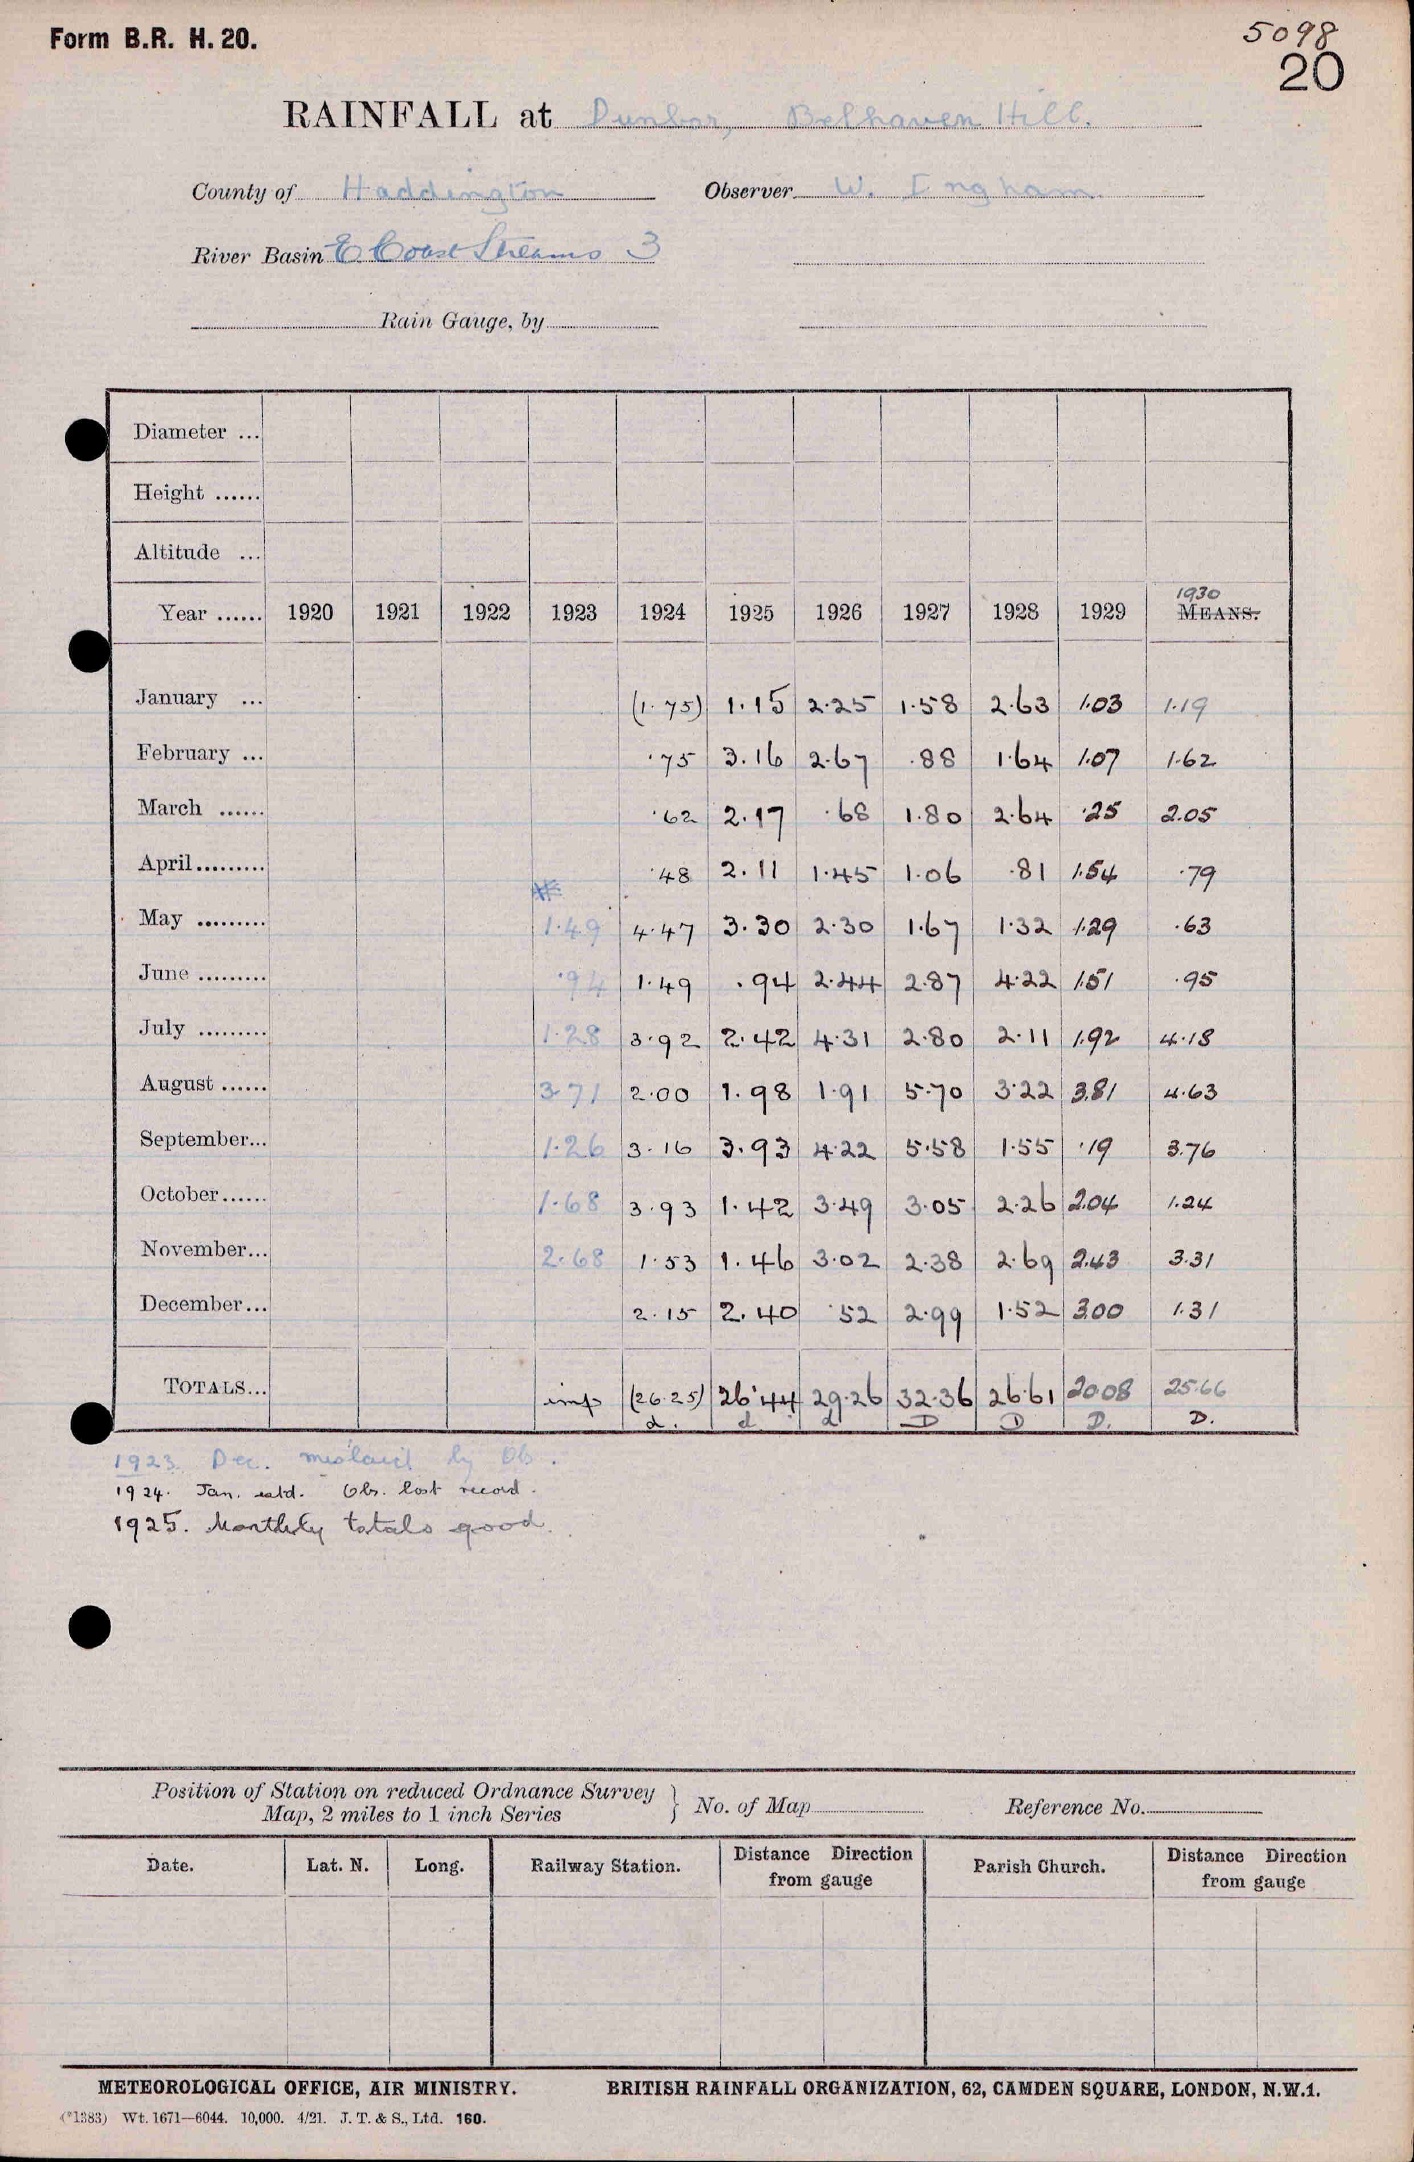 Form B.R. H. 20.
5098
20
RAINFALL at Dunbar, Belhaven Hill.
County of Haddington Observer W. Ingham.
River Basin E Coast Streams 3
Rain Gauge, by
Diameter ...
Height ......
Altitude ...
1930
Year ...... 1920 1921 1922 1923 1924 1925 1926 1927 1928 1929 MEANS.
January ... (1.75) 1.15 2.25 1.58 2.63 1.03 1.19
February ... .75 3.16 2.67 .88 1.64 1.07 1.62
March ...... .62 2.17 .68 1.80 2.64 .25 2.05
April......... .48 2.11 1.45 1.06 .81 1.54 .79
May ......... 1.49 4.47 3.30 2.30 1.67 1.32 1.29 .63
June ......... .94 1.49 .94 2.44 2.87 4.22 1.51 .95
July ......... 1.28 3.92 2.42 4.31 2.80 2.11 1.92 4.18
August ...... 3.71 2.00 1.98 1.91 5.70 3.22 3.81 4.63
September... 1.26 3.16 3.93 4.22 5.58 1.55 .19 3.76
October...... 1.68 3.93 1.42 3.49 3.05 2.26 2.04 1.24
November... 2.68 1.53 1.46 3.02 2.38 2.69 2.43 3.31
December... 2.15 2.40 .52 2.99 1.52 3.00 1.31
TOTALS... imp (26.25) 26.44 29.26 32.36 26.61 20.08 25.66
d. d d D D D. D.
1923. Dec. mislaid by Ob.
1924. Jan. estd. Obs. lost record.
1925. Monthly totals good.
Position of Station on reduced Ordnance Survey
Map, 2 miles to 1 inch Series } No. of Map Reference No.
Date. Lat. N. Long. Railway Station. Distance Direction from gauge Parish Church. Distance Direction from gauge
METEOROLOGICAL OFFICE, AIR MINISTRY. BRITISH RAINFALL ORGANIZATION, 62, CAMDEN SQUARE, LONDON, N.W.1.
(*1383) Wt. 1671—6044. 10,000. 4/21. J. T. & S., Ltd. 160.